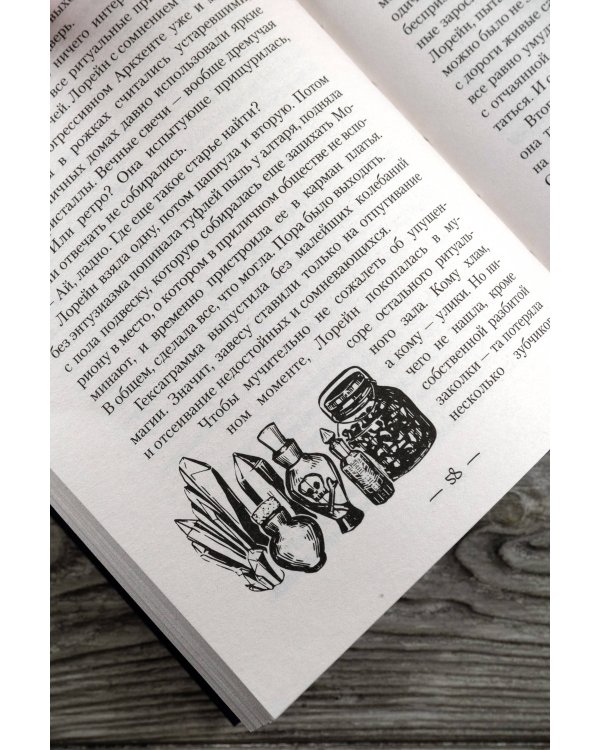 ничего интер
все ритуальные при
ей. Лорейн с сомнением
огрессивном Аркхенте уже и
и в рожках считались устаревшими,
ичных домах давно использовали яркие
исталлы. Вечные свечи – вообще дремучая
Или ретро? Она испытующе прищурилась,
и отвечать не собирались.
– Ай, ладно. Где еще такое старье найти?
Лорейн взяла одну, потом цапнула и вторую. Потом
без энтузиазма попинала туфлей пыль у алтаря, подняла
с пола подвеску, которую собиралась еще запихать Мо-
риону в место, о котором в приличном обществе не вспо-
минают, и временно пристроила ее в карман платья.
В общем, сделала все, что могла. Пора было выходить.
Гексаграмма выпустила без малейших колебаний
магии. Значит, завесу ставили только на отпугивание
и отсеивание недостойных и сомневающихся.
Чтобы мучительно не сожалеть об упущен-
ном моменте, Лорейн покопалась в му-
соре остального ритуаль-
ного зала. Кому хлам,
а кому – улики. Но ни-
чего не нашла, кроме
собственной разбитой
заколки – та потеряла
несколько зубчиков
— 58 —
одич
бесприс
ные зарос
Лорейн, пыта
можно было не з
с дороги живые
все равно умуд
с отчаянной
таться. И с
Втор
на